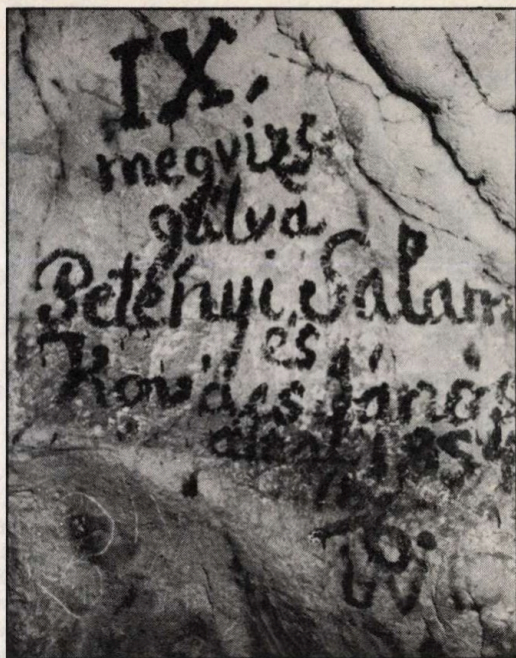 IX.
megvizs-
gálva
Petényi, Salam
és
Kovács János
által 185